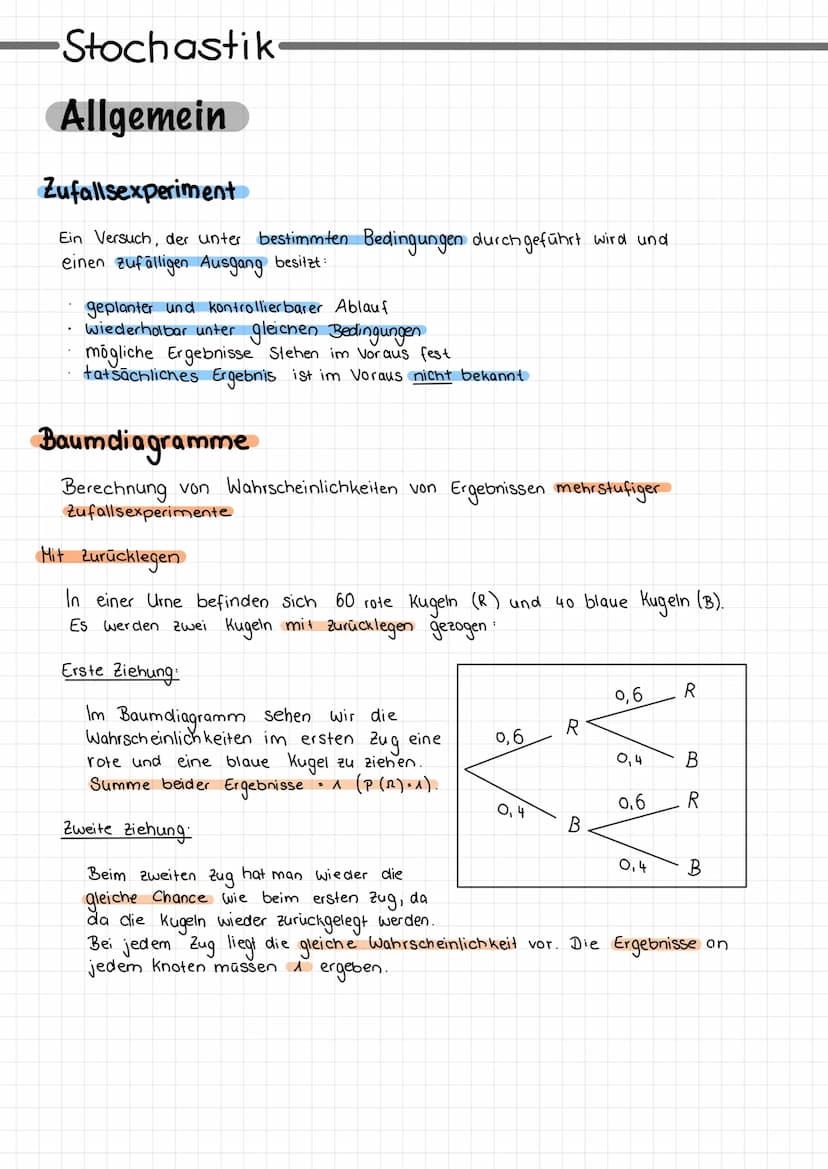 Stochastik
Allgemein
Zufallsexperiment
Ein Versuch, der unter bestimmten Bedingungen durchgeführt wird und
einen zufälligen Ausgang besitzt:
· geplanter und kontrollierbarer Ablauf
· wiederholbar unter gleichen Bedingungen
· mögliche Ergebnisse stehen im Voraus fest
· tatsächliches Ergebnis ist im Voraus nicht bekannt
Baumdiagramme
Berechnung von Wahrscheinlichkeiten von Ergebnissen mehrstufiger
Zufallsexperimente
Mit Zurücklegen
In einer Urne befinden sich 60 rote Kugeln (R) und 40 blaue Kugeln (B).
Es werden zwei Kugeln mit zurücklegen gezogen:
Erste Ziehung:
Im Baumdiagramm sehen wir die
Wahrscheinlichkeiten im ersten Zug eine
rote und eine blaue Kugel zu ziehen.
Summe beider Ergebnisse = 1 (P(Ω)=1).
Zweite Ziehung:
Beim zweiten Zug hat man wieder die
gleiche Chance wie beim ersten Zug, da
da die Kugeln wieder zurückgelegt werden.
Bei jedem Zug liegt die gleiche Wahrscheinlichkeit vor. Die Ergebnisse an
jedem Knoten müssen 1 ergeben.
0,6 R
0,6 R
0,4 B
0,4 B
0,6 R
0,4 B